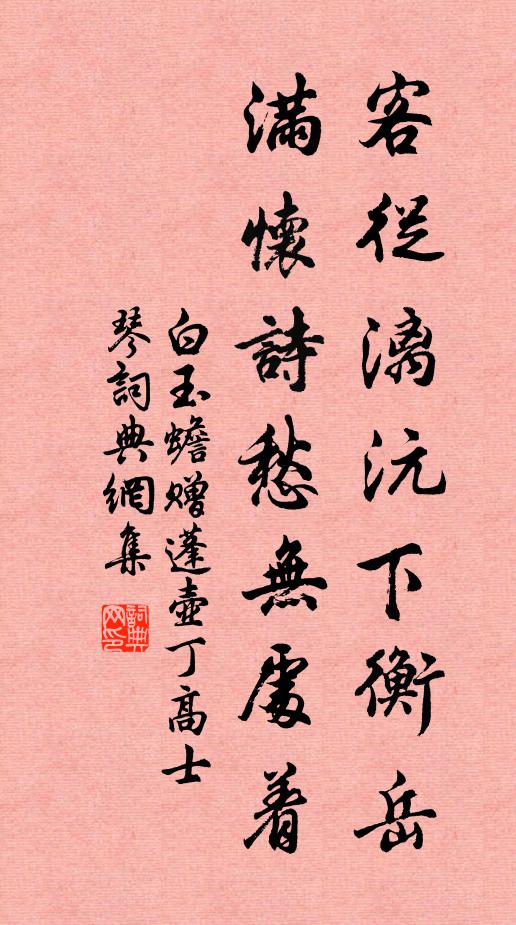 客從漓沅下衡岳
滿懷詩愁無處着
白玉蟾贈蓬壺丁高士
琴詞典網集
詞典網印